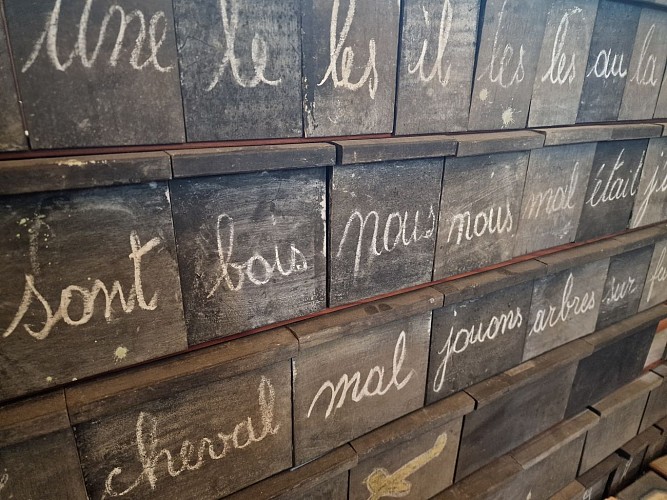 Une le les il les les au la
sont bois nous nous mal était
cheval mal jouons arbres sur